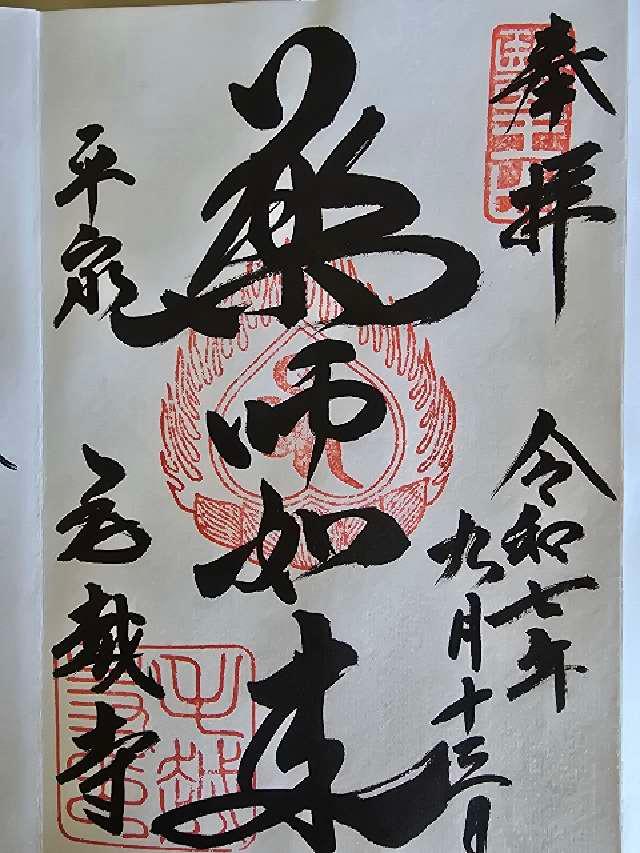 奉拝
令和七年
九月十三日
薬師如来
平泉
毛越寺